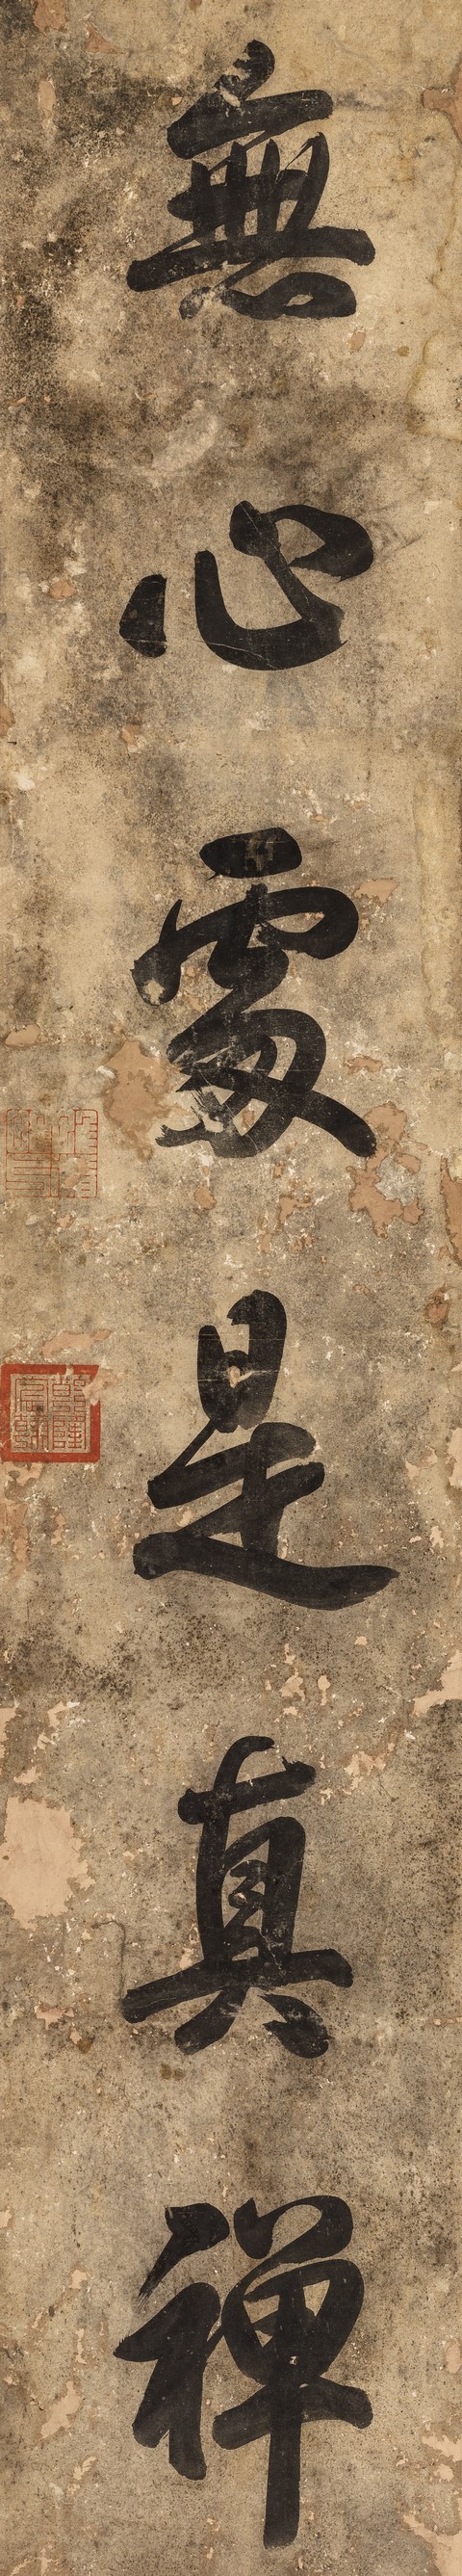 無心處是真禅